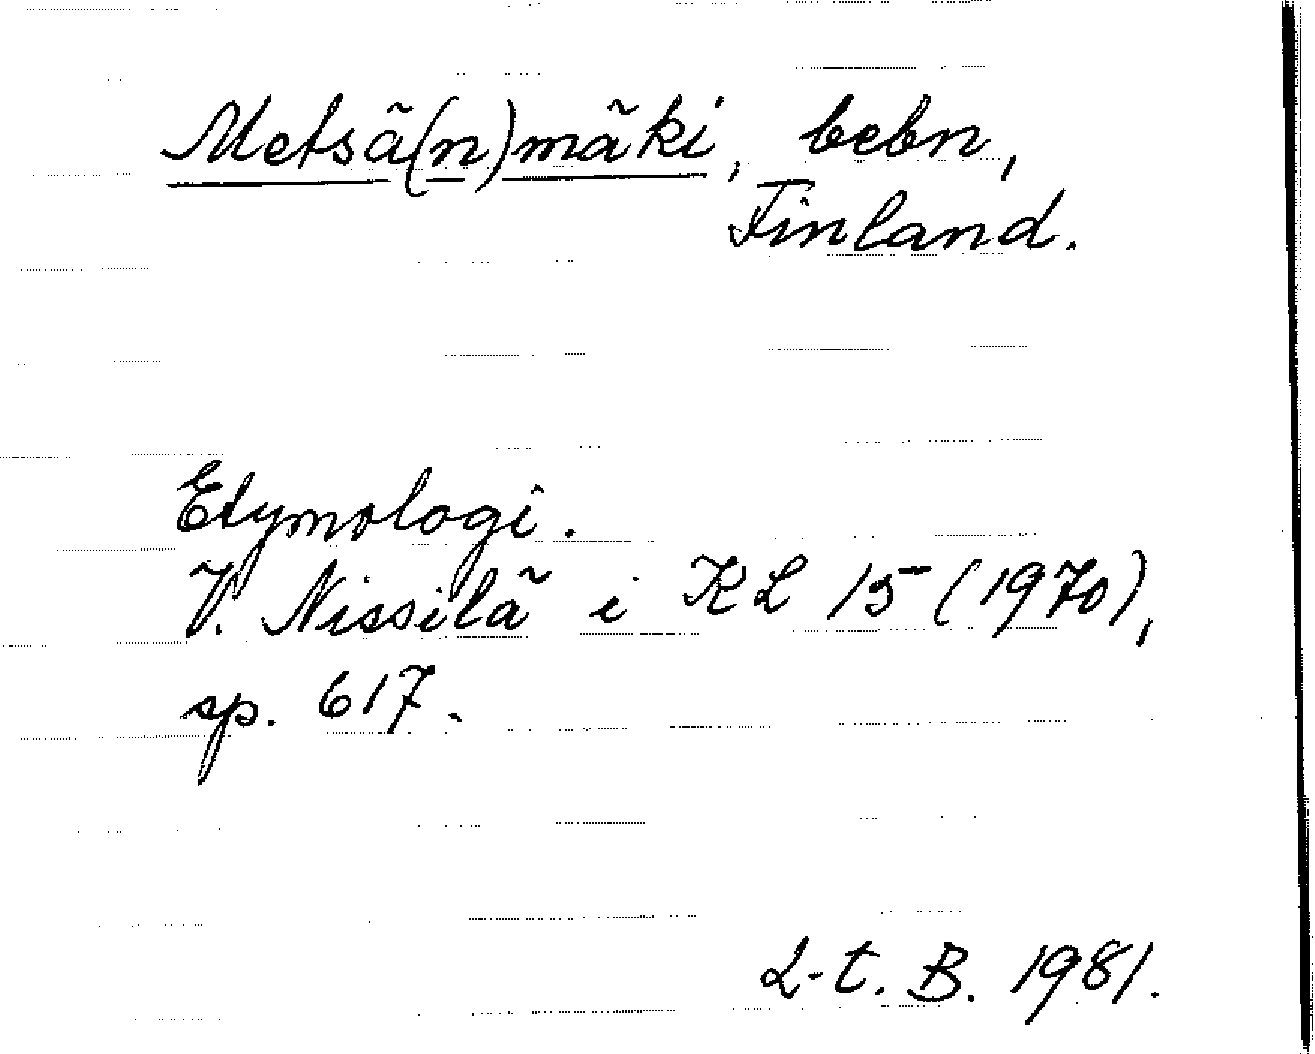 Metsä(n)mäki, bebn,
Finland.
Etymologi.
V. Nissilä i KL 15 (1970),
sp. 617.
L-t. B. 1981.